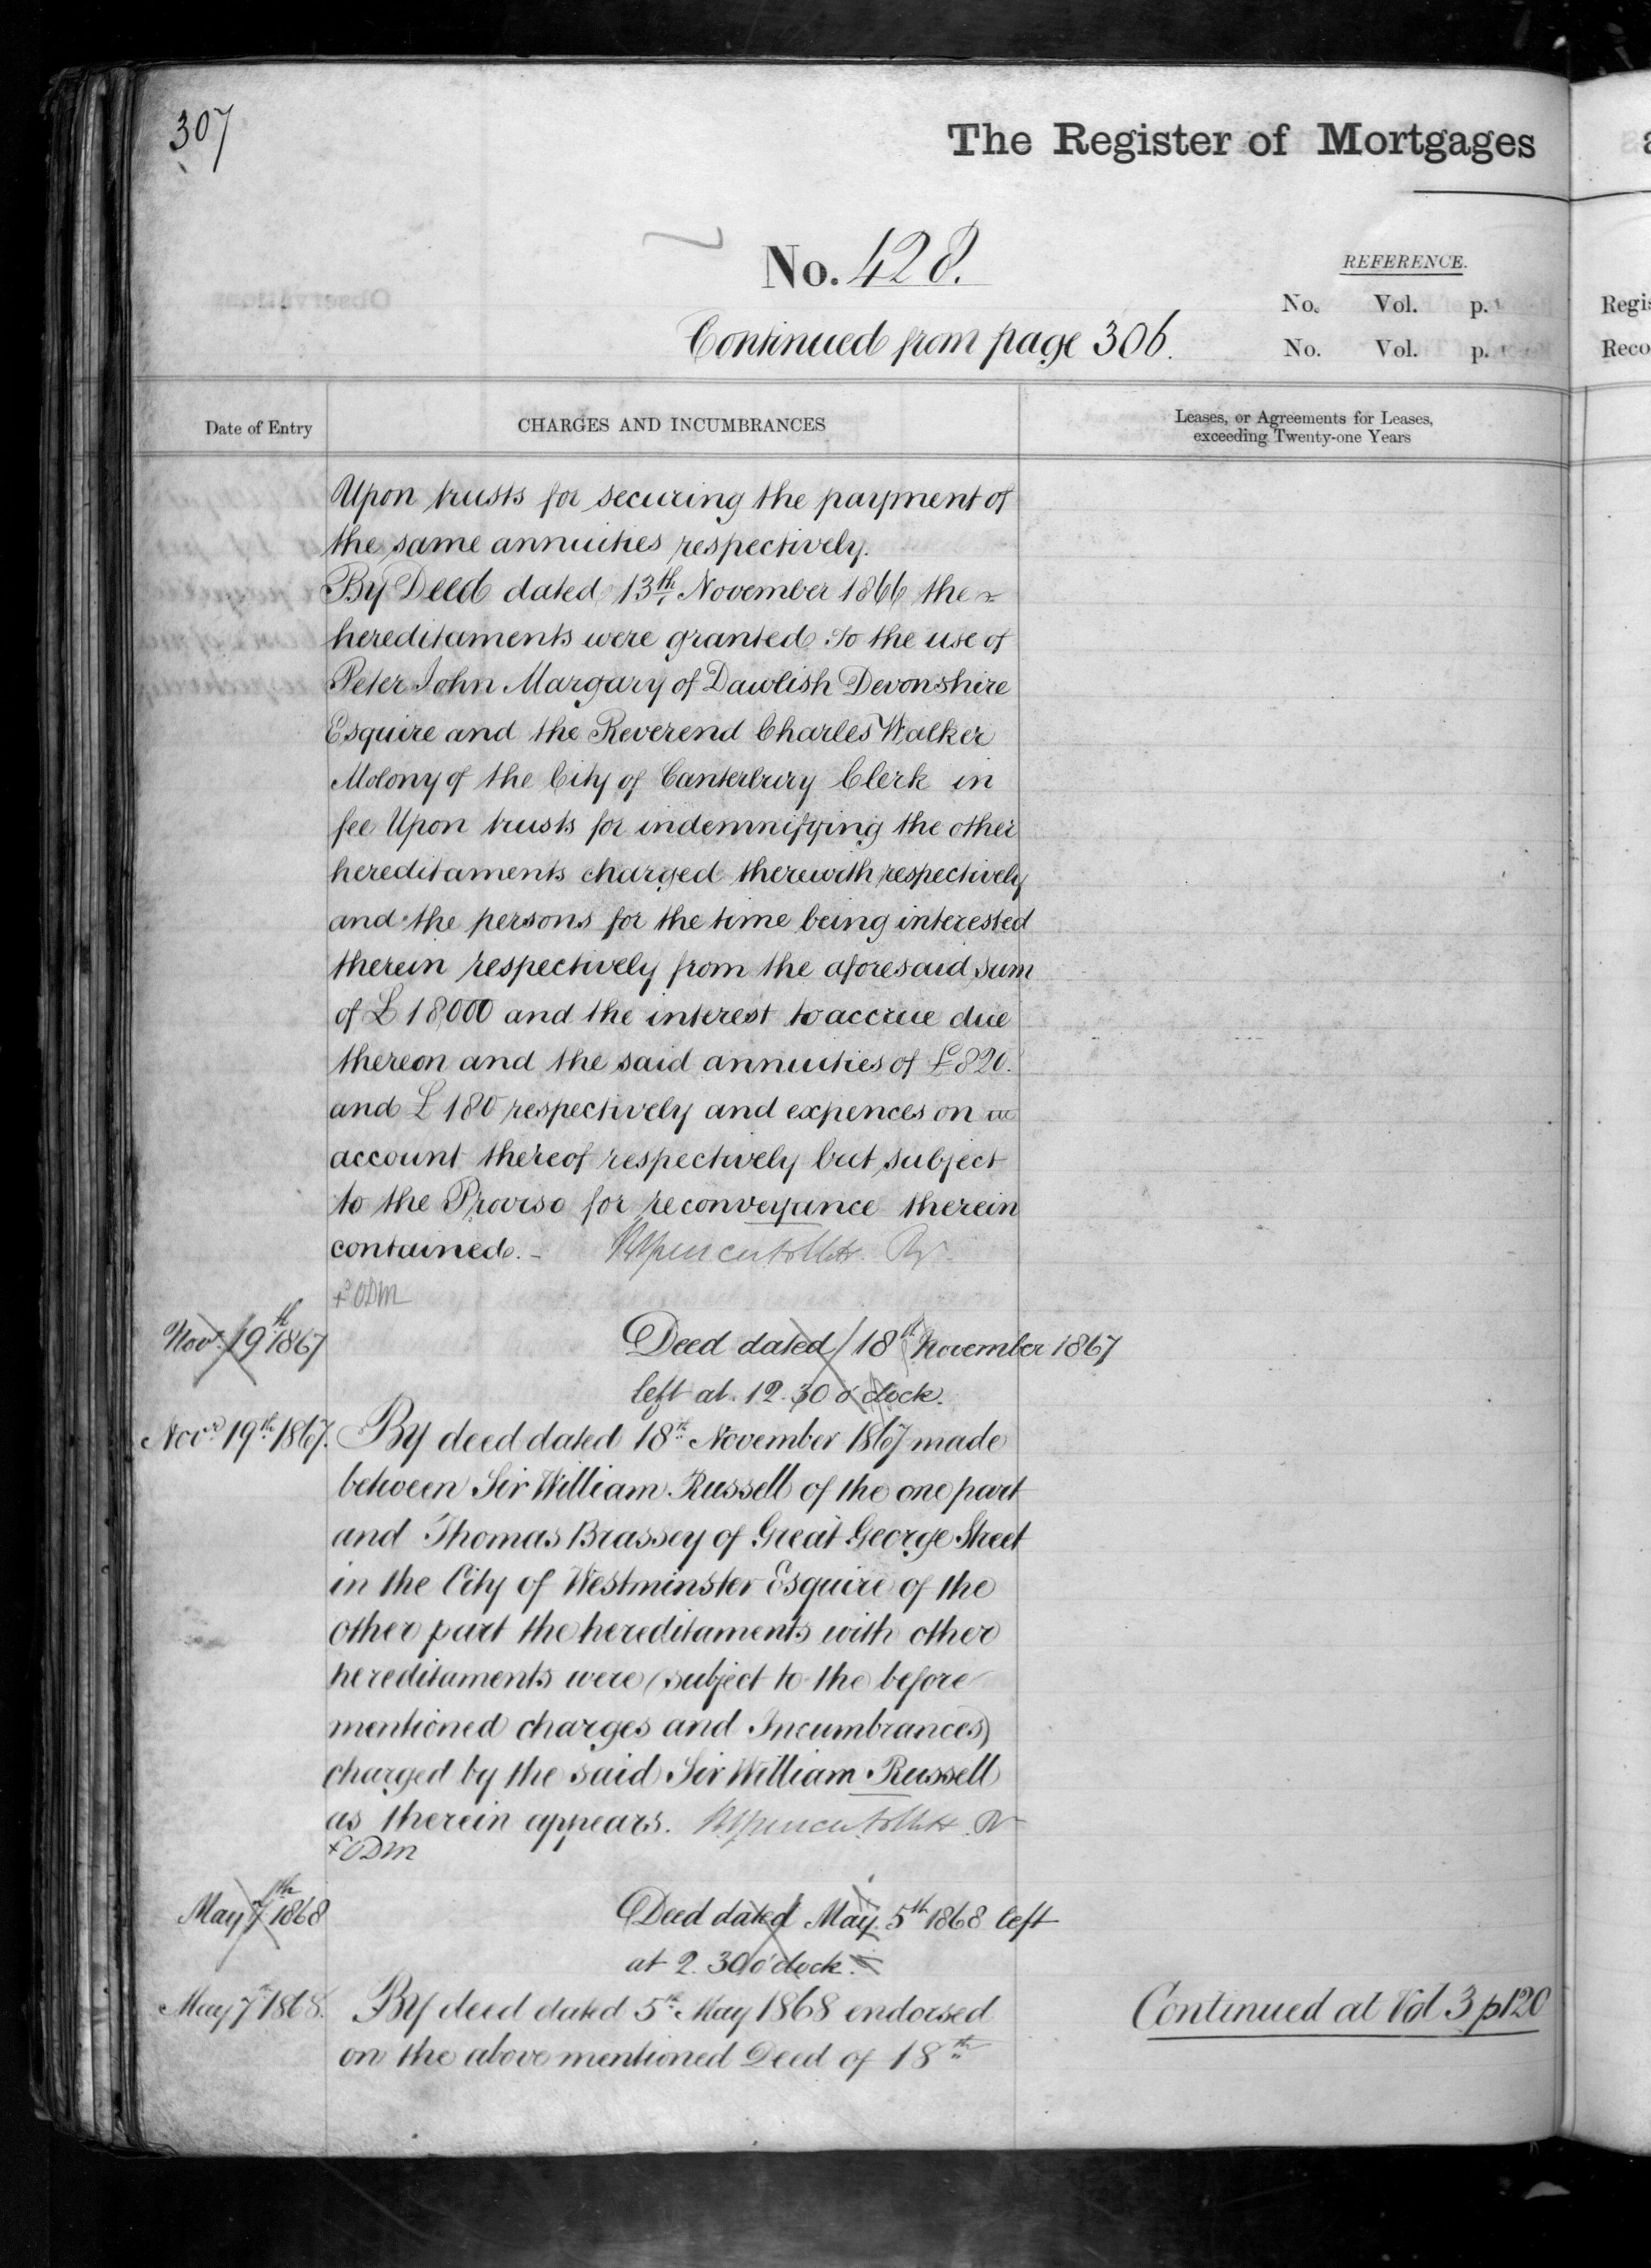 307
The Register of Mortgages
No. 428.
REFERENCE.
No. Vol. p.
No. Vol. p.
Continued from page 306.
Date of Entry
CHARGES AND INCUMBRANCES
Leases, or Agreements for Leases,
exceeding Twenty-one Years
Upon trusts for securing the payment of
the same annuities respectively.
By Deed dated 13th November 1866 the
hereditaments were granted To the use of
Peter John Margary of Dawlish Devonshire
Esquire and the Reverend Charles Walker
Molony of the City of Canterbury Clerk in
fee Upon trusts for indemnifying the other
hereditaments charged therewith respectively
and the persons for the time being interested
therein respectively from the aforesaid sum
of £18,000 and the interest to accrue due
thereon and the said annuities of £820.
and £180 respectively and expences on
account thereof respectively but subject
to the Proviso for reconveyance therein
contained. -
+ ODM
Novr. 19th 1867
Deed dated 18th November 1867
left at 12.30 o'clock.
Novr 19th 1867. By deed dated 18th November 1867 made
between Sir William Russell of the one part
and Thomas Brassey of Great George Street
in the City of Westminster Esquire of the
other part the hereditaments with other
hereditaments were (subject to the before
mentioned charges and Incumbrances)
charged by the said Sir William Russell
as therein appears.
+ ODM
May 7th 1868
Deed dated May 5th 1868 left
at 2.30 o'clock.
May 7th 1868. By deed dated 5th May 1868 endorsed
on the above mentioned Deed of 18th
Continued at Vol 3 p120
Regis
Reco